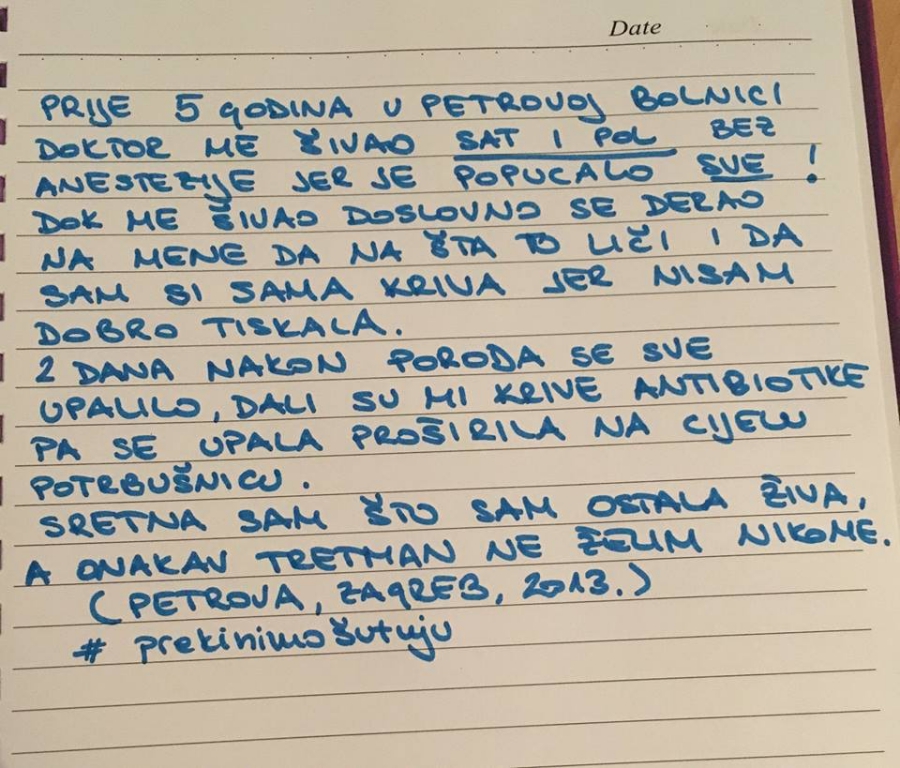 Date
PRIJE 5 GODINA U PETROVOJ BOLNICI
DOKTOR ME ŠIVAO SAT I POL BEZ
ANESTEZIJE JER JE POPUCALO SVE !
DOK ME ŠIVAO DOSLOVNO SE DERAO
NA MENE DA NA ŠTA TO LIČI I DA
SAM SI SAMA KRIVA JER NISAM
DOBRO TISKALA.
2 DANA NAKON PORODA SE SVE
UPALILO, DALI SU MI KRIVE ANTIBIOTIKE
PA SE UPALA PROŠIRILA NA CIJELU
POTRBUŠNICU.
SRETNA SAM ŠTO SAM OSTALA ŽIVA,
A ONAKAV TRETMAN NE ŽELIM NIKOME.
(PETROVA, ZAGREB, 2013.)
# prekinimo šutnju